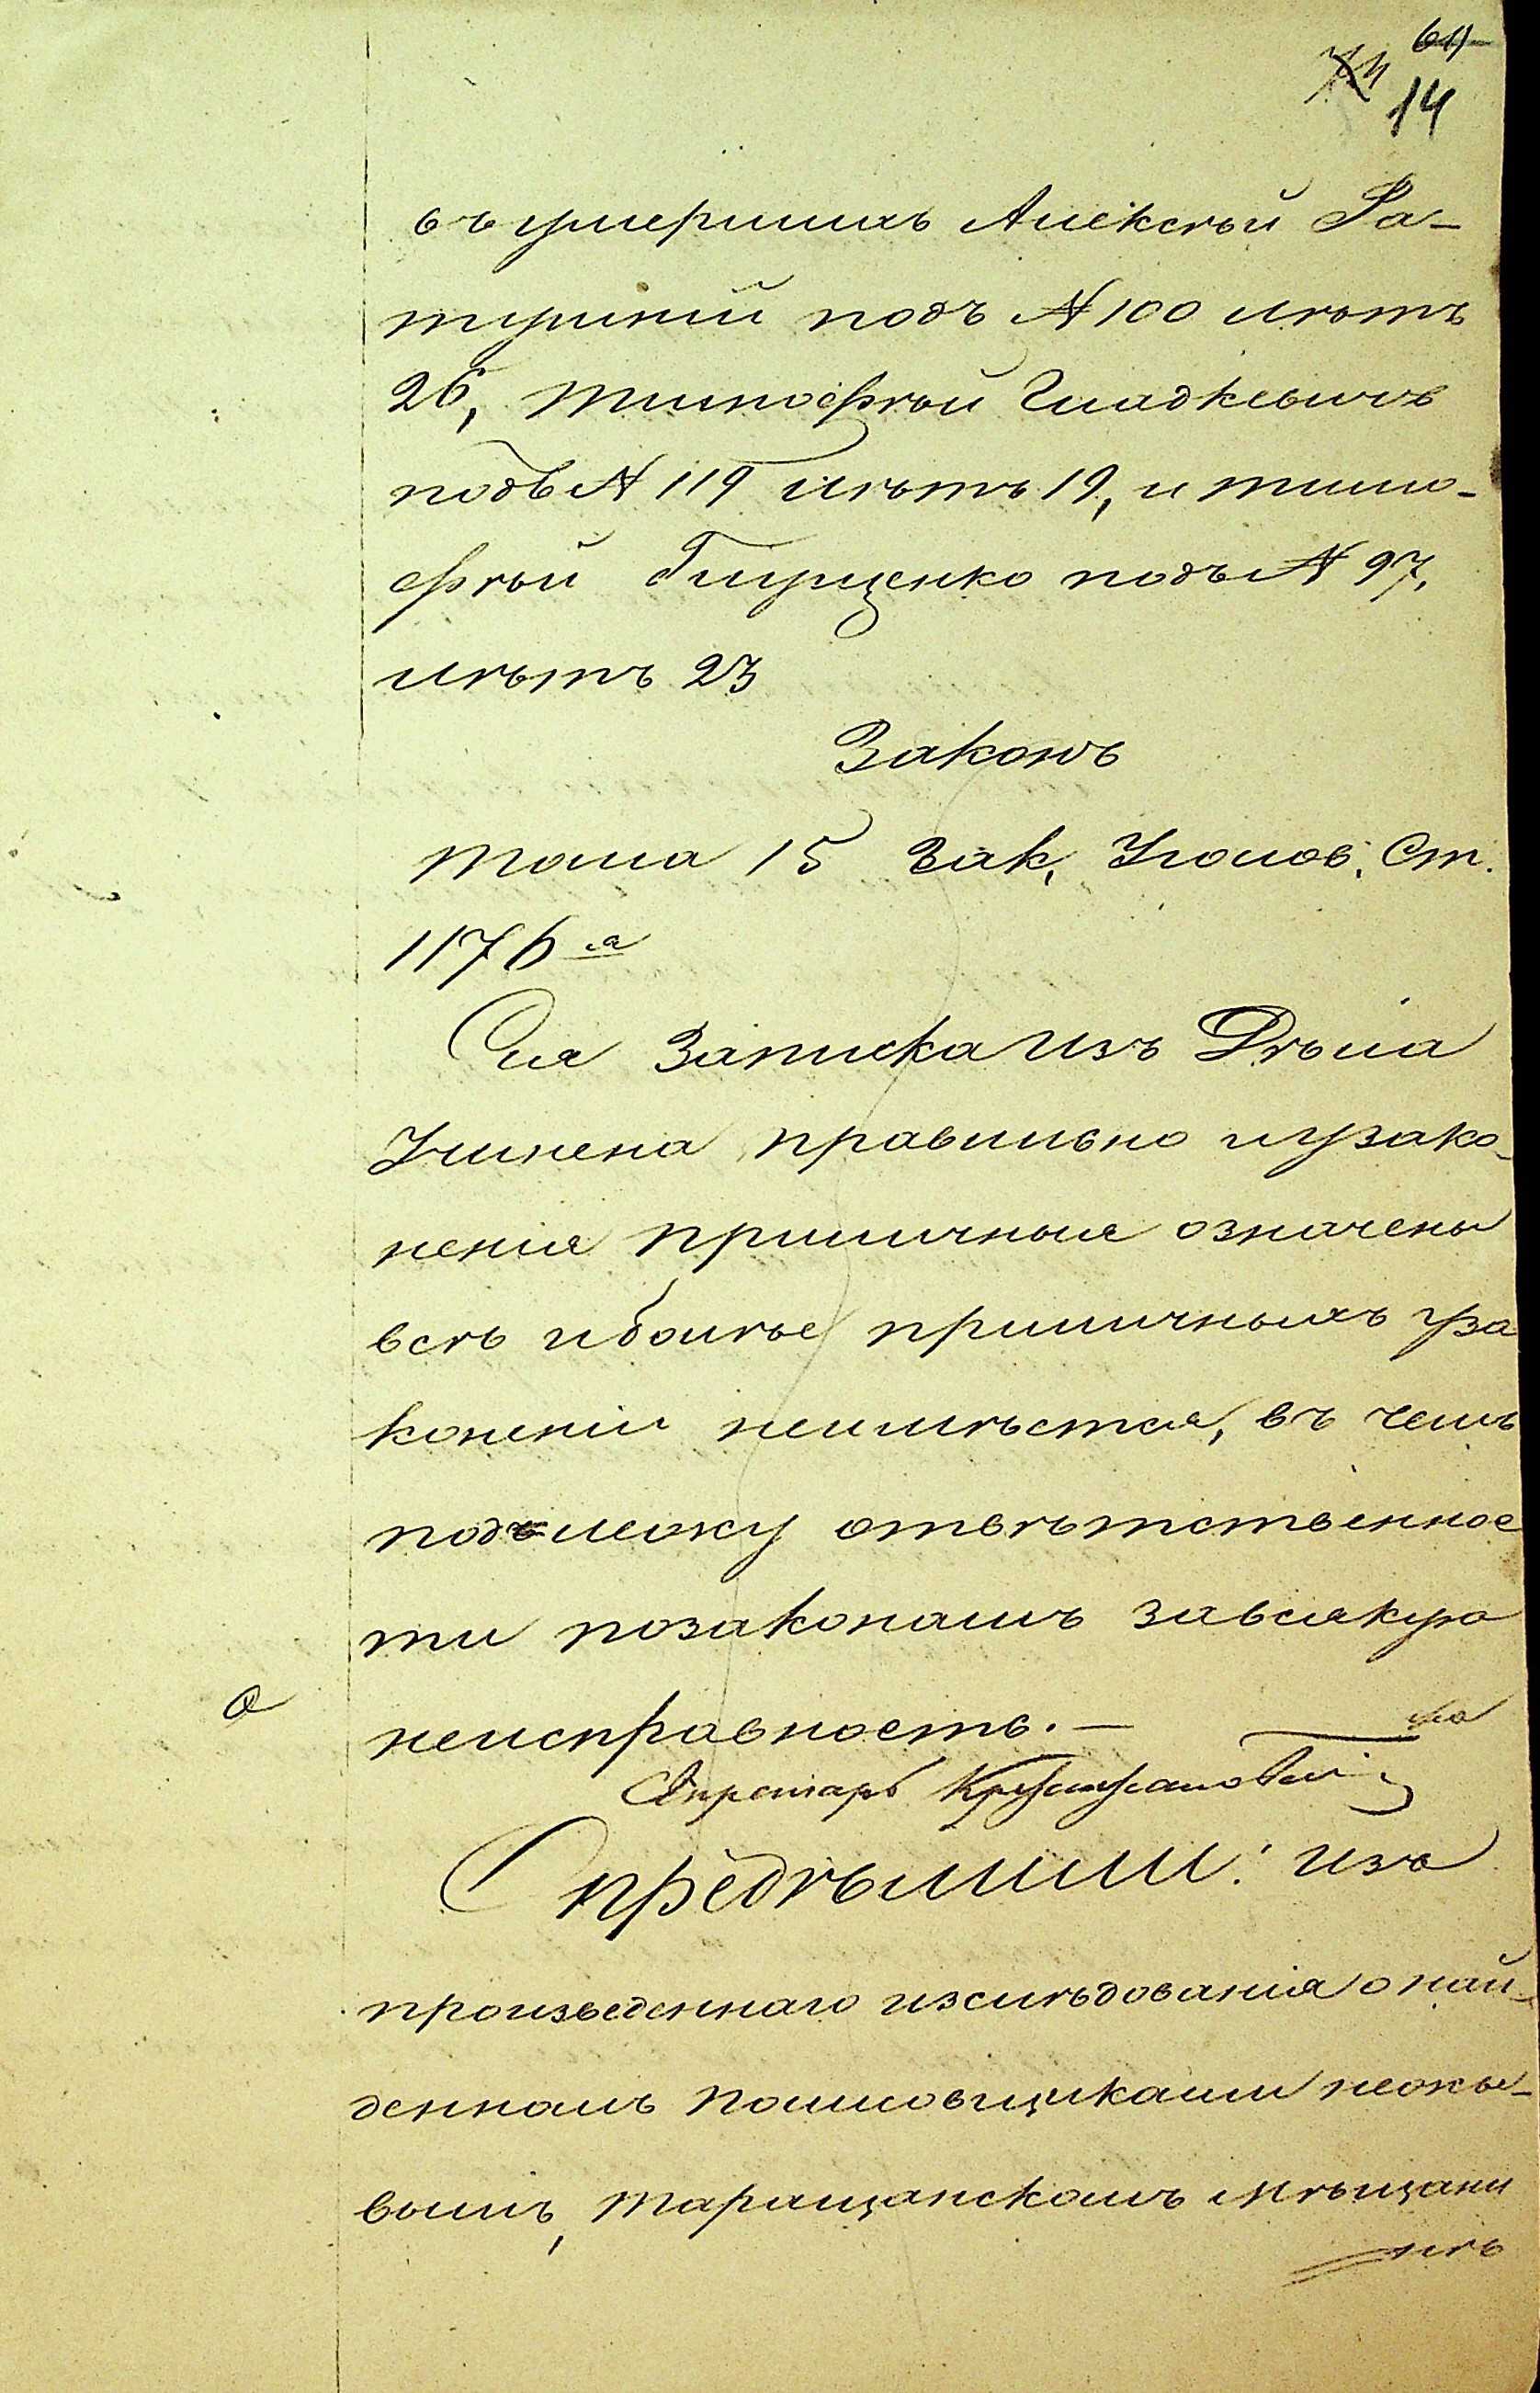 61
14
въ умершихъ Алексѣй Ра-
тушній подъ № 100 лѣтъ
26, Тимофѣй Гладкевичъ
подъ № 119 лѣтъ 19, и Тимо-
фѣй Глущенко подъ № 97,
лѣтъ 23
Законъ
Тома 15 Зак. Уголов. Ст.
1176 а
Сія Записка изъ Дѣла
Учинена правильно и узако-
ненія приличныя означены
всѣ и болѣе приличныхъ уза
коненій неимѣется, въ чемъ
подлежу отвѣтственнос
ти позаконамъ завсякую
неисправность. —
Секретарь
Опредѣлили: изъ
произведеннаго изслѣдованія о най-
денномъ Полисовщиками нежи-
вымъ, Таращанскомъ Мѣщани
нѣ